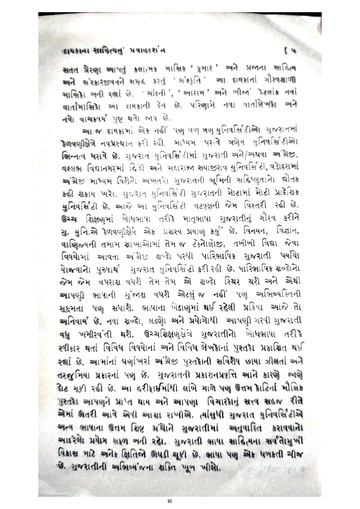 દાયકાના સાહિત્યનું પ્રવાહદર્શન [ ૫
સતત પ્રેરણા આપતું કલાત્મક માસિક ' કુમાર ' અને પ્રજાના સાહિત્ય
અને સંસ્કારજીવનને સમૃદ્ધ કરતું ' સંસ્કૃતિ ' આ દાયકાનાં ગૌરવશાળી
માસિકો બની રહ્યાં છે. ' ચાંદની ', ' આરામ ' અને બીજાં કેટલાંક નવાં
વાર્તામાસિકો આ દાયકાની દેન છે. પરિણામે નવા વાર્તાલેખકો અને
નવો વાચકવર્ગ પુષ્ટ થતો જાય છે.
આ જ દાયકામાં એક નહીં પણ ત્રણ ત્રણ યુનિવર્સિટીઓ ગુજરાતમાં
કેળવણીક્ષેત્રે નવપ્રસ્થાન કરી રહી. માધ્યમ પરત્વે ત્રણેય યુનિવર્સિટીઓ
ભિન્નત્વ ધરાવે છે. ગુજરાત યુનિવર્સિટીમાં ગુજરાતી અને/અથવા અંગ્રેજી,
વલ્લભ વિદ્યાનગરમાં હિંદી અને મહારાજા સયાજીરાવ યુનિવર્સિટી, વડોદરામાં
અંગ્રેજી માધ્યમ વિરોની અખતરા ગુજરાતની ભૂમિની સહિષ્ણુતાના દ્યોતક
કહી શકાય ખરા. ગુજરાત યુનિવર્સિટી ગુજરાતની મોટામાં મોટી પ્રાદેશિક
યુનિવર્સિટી છે. આજે આ યુનિવર્સિટી વટવૃક્ષની જેમ વિસ્તરી રહી છે.
ઉચ્ચ શિક્ષણમાં બોધભાષા તરીકે માતૃભાષા ગુજરાતીનું ગૌરવ કરીને
ગુ. યુનિ.એ કેળવણીક્ષેત્રે એક પ્રશસ્ય પ્રયાણ કર્યું છે. વિનયન, વિજ્ઞાન,
વાણિજ્યની તમામ શાખાઓમાં તેમ જ ટેકનોલોજી, તબીબી વિદ્યા જેવા
વિષયોમાં આવતા અંગ્રેજી શબ્દો પરથી પારિભાષિક ગુજરાતી પર્યાયો
યોજવાનો પુરુષાર્થ ગુજરાત યુનિવર્સિટી કરી રહી છે. પારિભાષિક શબ્દોનો
જેમ જેમ વપરાશ વધશે તેમ તેમ એ શબ્દો સ્થિર થશે અને એથી
આપણી ભાષાની ગુંજાશ વધશે એટલું જ નહીં પણ અભિવ્યક્તિની
સૂક્ષ્મતા પણ સધાશે. ભાષાના ખેડાણમાં થઈ રહેલી પ્રક્રિયા આજે તો
અનિવાર્ય છે. નવા શબ્દો, લઢણો અને પ્રયોગોથી આપણી ગરવી ગુજરાતી
વધુ ખમીરવંતી થશે. ઉચ્ચશિક્ષણક્ષેત્રે ગુજરાતીનો બોધભાષા તરીકે
સ્વીકાર થતાં વિવિધ વિષયોનાં અને વિવિધ લેખકોનાં પુસ્તકો પ્રકાશિત થઈ
રહ્યાં છે. આમાંનાં ઘણાંખરાં અંગ્રેજી પુસ્તકોની સવિશેષ છાયા ઝીલતાં અને
તરજુમિયા પ્રકારનાં પણ છે. ગુજરાતની પ્રકાશનપ્રવૃત્તિ આને કારણે જાણે
દોટ મૂકી રહી છે. આ હરીફાઈમાંથી લાંબે ગાળે પણ ઉત્તમ કોટિનાં મૌલિક
પુસ્તકો આપણને પ્રાપ્ત થાય અને આપણા વિચારકોનું સત્ત્વ સહજ રીતે
એમાં ભંતરી આવે એવી આશા રાખીએ. ત્યાંસુધી ગુજરાત યુનિવર્સિટીએ
અન્ય ભાષાના ઉત્તમ શિષ્ટ ગ્રંથોને ગુજરાતીમાં અનુવાદિત કરાવવાનો
આદરેલો પ્રયોગ સફળ બની રહો. ગુજરાતી ભાષા સાહિત્યના સર્વતોમુખી
વિકાસ માટે અનેક ક્ષિતિજો ઊઘડી ચૂકી છે. ભાષા પણ એક ધબકતી ચીજ
છે. ગુજરાતીની અભિવ્યંજના શક્તિ ખૂબ ખીલો.